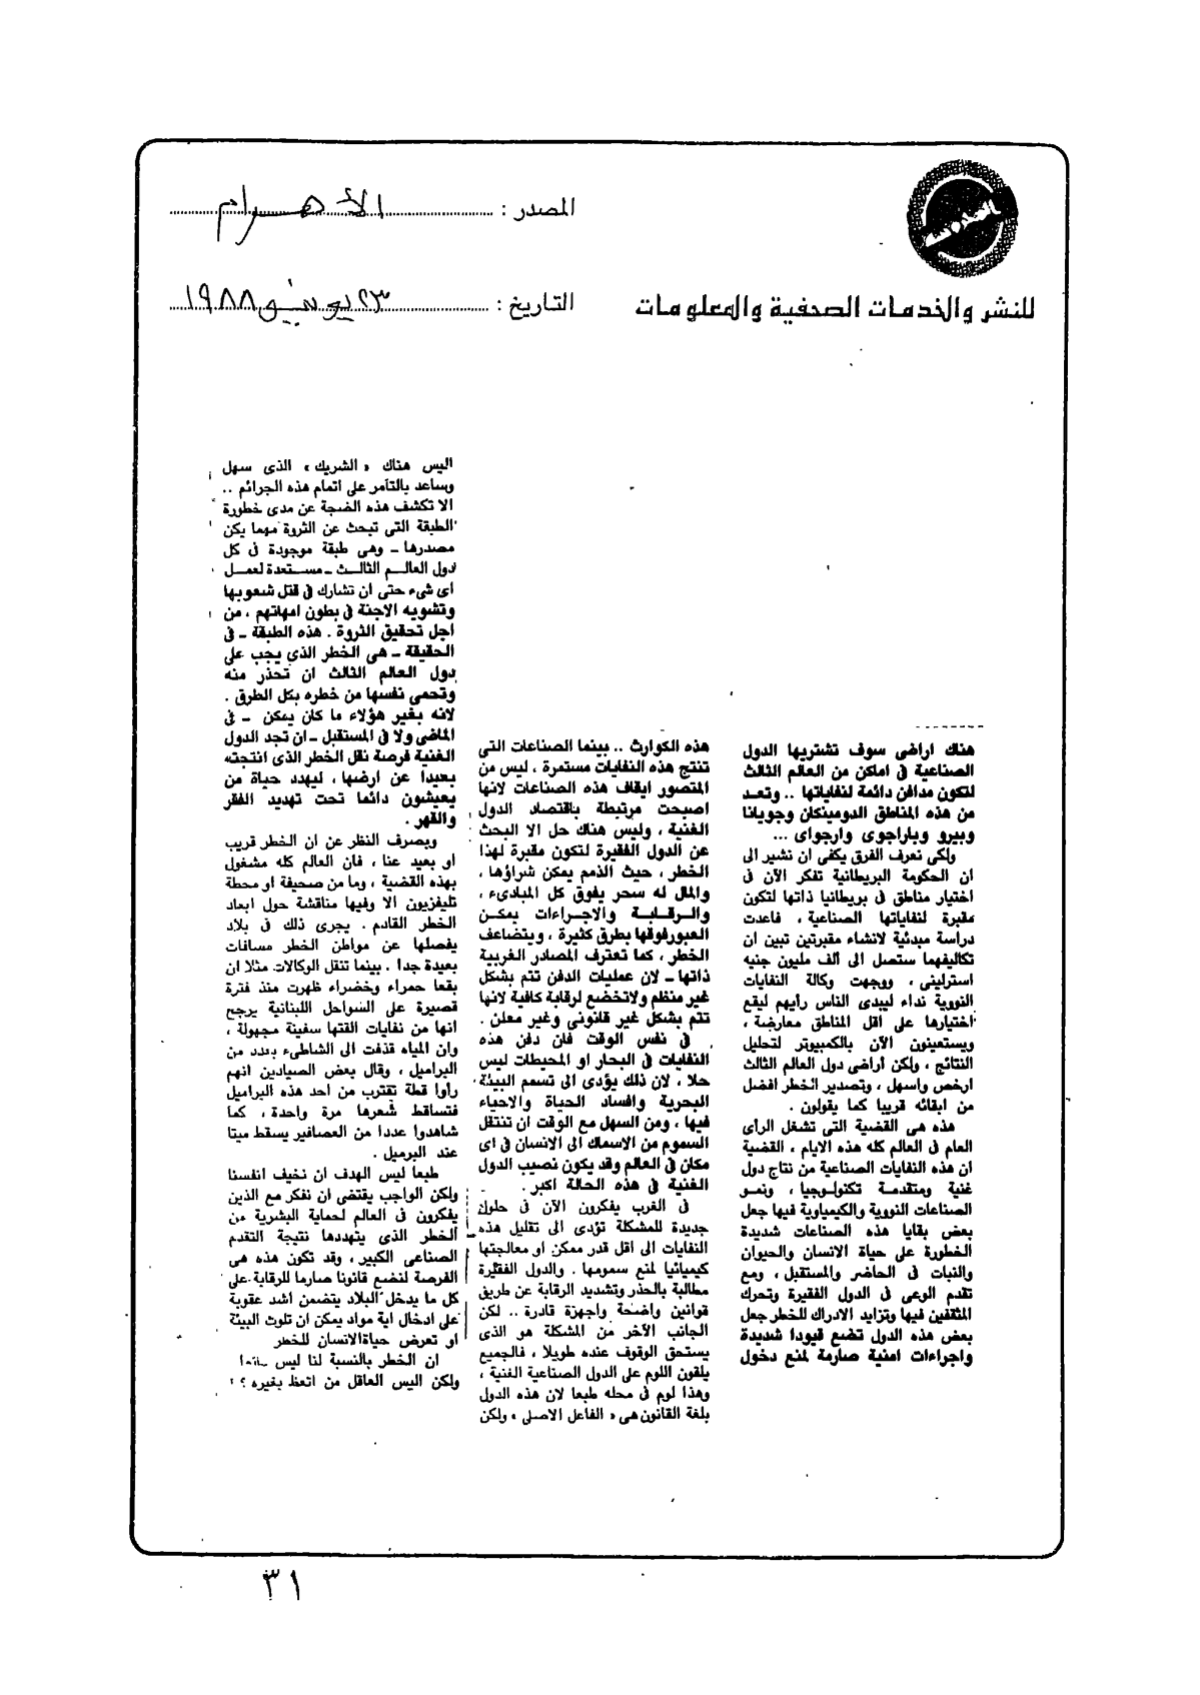 المصدر : الأهرام
للنشر والخدمات الصحفية والمعلومات
التاريخ : ٢٣ يونيو ١٩٨٨
هناك اراضى سوف تشتريها الدول
الصناعية فى اماكن من العالم الثالث
لتكون مدافن دائمة لنفاياتها .. وتعـد
من هذه المناطق الدومينكان وجويانا
وبيرو وباراجوى وارجواى ...
ولكى نعرف الفرق يكفى ان نشير الى
ان الحكومة البريطانية تفكر الآن فى
اختيار مناطق فى بريطانيا ذاتها لتكون
مقبرة لنفاياتها الصناعية ، فاعدت
دراسة مبدئية لانشاء مقبرتين تبين ان
تكاليفهما ستصل الى ألف مليون جنيه
استرلينى ، ووجهت وكالة النفايات
النووية نداء ليبدى الناس رايهم ليقع
اختيارها على اقل المناطق معارضة ،
ويستعينون الآن بالكمبيوتر لتحليل
النتائج ، ولكن أراضى دول العالم الثالث
ارخص واسهل ، وتصدير الخطر افضل
من ابقائه قريبا كما يقولون .
هذه هى القضية التى تشغل الرأى
العام فى العالم كله هذه الايام ، القضية
ان هذه النفايات الصناعية من نتاج دول
غنية ومتقدمة تكنولوجيا ، ونمـو
الصناعات النووية والكيمياوية فيها جعل
بعض بقايا هذه الصناعات شديدة
الخطورة على حياة الانسان والحيوان
والنبات فى الحاضر والمستقبل ، ومع
تقدم الوعى فى الدول الفقيرة وتحرك
المثقفين فيها وتزايد الادراك للخطر جعل
بعض هذه الدول تضع قيودا شديدة
واجراءات امنية صارمة لمنع دخول
هذه الكوارث .. بينما الصناعات التى
تنتج هذه النفايات مستمرة ، ليس من
المتصور ايقاف هذه الصناعات لانها
اصبحت مرتبطة باقتصاد الدول
الغنية ، وليس هناك حل الا البحث
عن الدول الفقيرة لتكون مقبرة لهذا
الخطر ، حيث الذمم يمكن شراؤها ،
والمال له سحر يفوق كل المبادىء ،
والـرقـابة والاجـراءات يمكـن
العبور فوقها بطرق كثيرة ، ويتضاعف
الخطر ، كما تعترف المصادر الغربية
ذاتها ـ لان عمليات الدفن تتم بشكل
غير منظم ولاتخضع لرقابة كافية لانها
تتم بشكل غير قانونى وغير معلن .
فى نفس الوقت فان دفن هذه
النفايات فى البحار او المحيطات ليس
حلا ، لان ذلك يؤدى الى تسمم البيئة
البحرية وافساد الحياة والاحياء
فيها ، ومن السهل مع الوقت ان تنتقل
السموم من الاسماك الى الانسان فى اى
مكان فى العالم وقد يكون نصيب الدول
الغنية فى هذه الحالة اكبر .
فى الغرب يفكرون الآن فى حلول
جديدة للمشكلة تؤدى الى تقليل هذه
النفايات الى أقل قدر ممكن او معالجتها
كيميائيا لمنع سمومها . والدول الفقيرة
مطالبة بالحذر وتشديد الرقابة عن طريق
قوانين واضحة واجهزة قادرة .. لكن
الجانب الآخر من المشكلة هو الذى
يستحق الوقوف عنده طويلا ، فالجميع
يلقون اللوم على الدول الصناعية الغنية ،
وهذا لوم فى محله طبعا لان هذه الدول
بلغة القانون هى « الفاعل الاصلى » ولكن
اليس هناك « الشريك » الذى سهل
وساعد بالتآمر على اتمام هذه الجرائم ..
الا تكشف هذه الضجة عن مدى خطورة
الطبقة التى تبحث عن الثروة مهما يكن
مصدرها ـ وهى طبقة موجودة فى كل
دول العالـم الثالث ـ مستعدة لعمـل
اى شىء حتى ان تشارك فى قتل شعوبها
وتشويه الاجنة فى بطون امهاتهم ، من
اجل تحقيق الثروة . هذه الطبقة ـ فى
الحقيقة ـ هى الخطر الذى يجب على
دول العالم الثالث ان تحذر منه
وتحمى نفسها من خطره بكل الطرق .
لانه بغير هؤلاء ما كان يمكن ـ فى
الماضى ولا فى المستقبل ـ ان تجد الدول
الغنية فرصة نقل الخطر الذى انتجته
بعيدا عن ارضها ، ليهدد حياة من
يعيشون دائما تحت تهديد الفقر
والقهر .
وبصرف النظر عن ان الخطر قريب
او بعيد عنا ، فان العالم كله مشغول
بهذه القضية ، وما من صحيفة او محطة
تليفزيون الا وفيها مناقشة حول ابعاد
الخطر القادم . يجرى ذلك فى بلاد
يفصلها عن مواطن الخطر مسافات
بعيدة جدا . بينما تنقل الوكالات مثلا ان
بقعا حمراء وخضراء ظهرت منذ فترة
قصيرة على السواحل اللبنانية يرجح
انها من نفايات القتها سفينة مجهولة ،
وان المياه قذفت الى الشاطىء بعدد من
البراميل ، وقال بعض الصيادين انهم
رأوا قطة تقترب من احد هذه البراميل
فتساقط شعرها مرة واحدة ، كما
شاهدوا عددا من العصافير يسقط ميتا
عند البرميل .
طبعا ليس الهدف ان نخيف انفسنا
ولكن الواجب يقتضى ان نفكر مع الذين
يفكرون فى العالم لحماية البشرية من
الخطر الذى يتهددها نتيجة التقدم
الصناعى الكبير ، وقد تكون هذه هى
الفرصة لنضع قانونا صارما للرقابة على
كل ما يدخل البلاد يتضمن اشد عقوبة
على ادخال اية مواد يمكن ان تلوث البيئة
او تعرض حياة الانسان للخطر
ان الخطر بالنسبة لنا ليس
ولكن اليس العاقل من اتعظ بغيره ؟ !
٣١